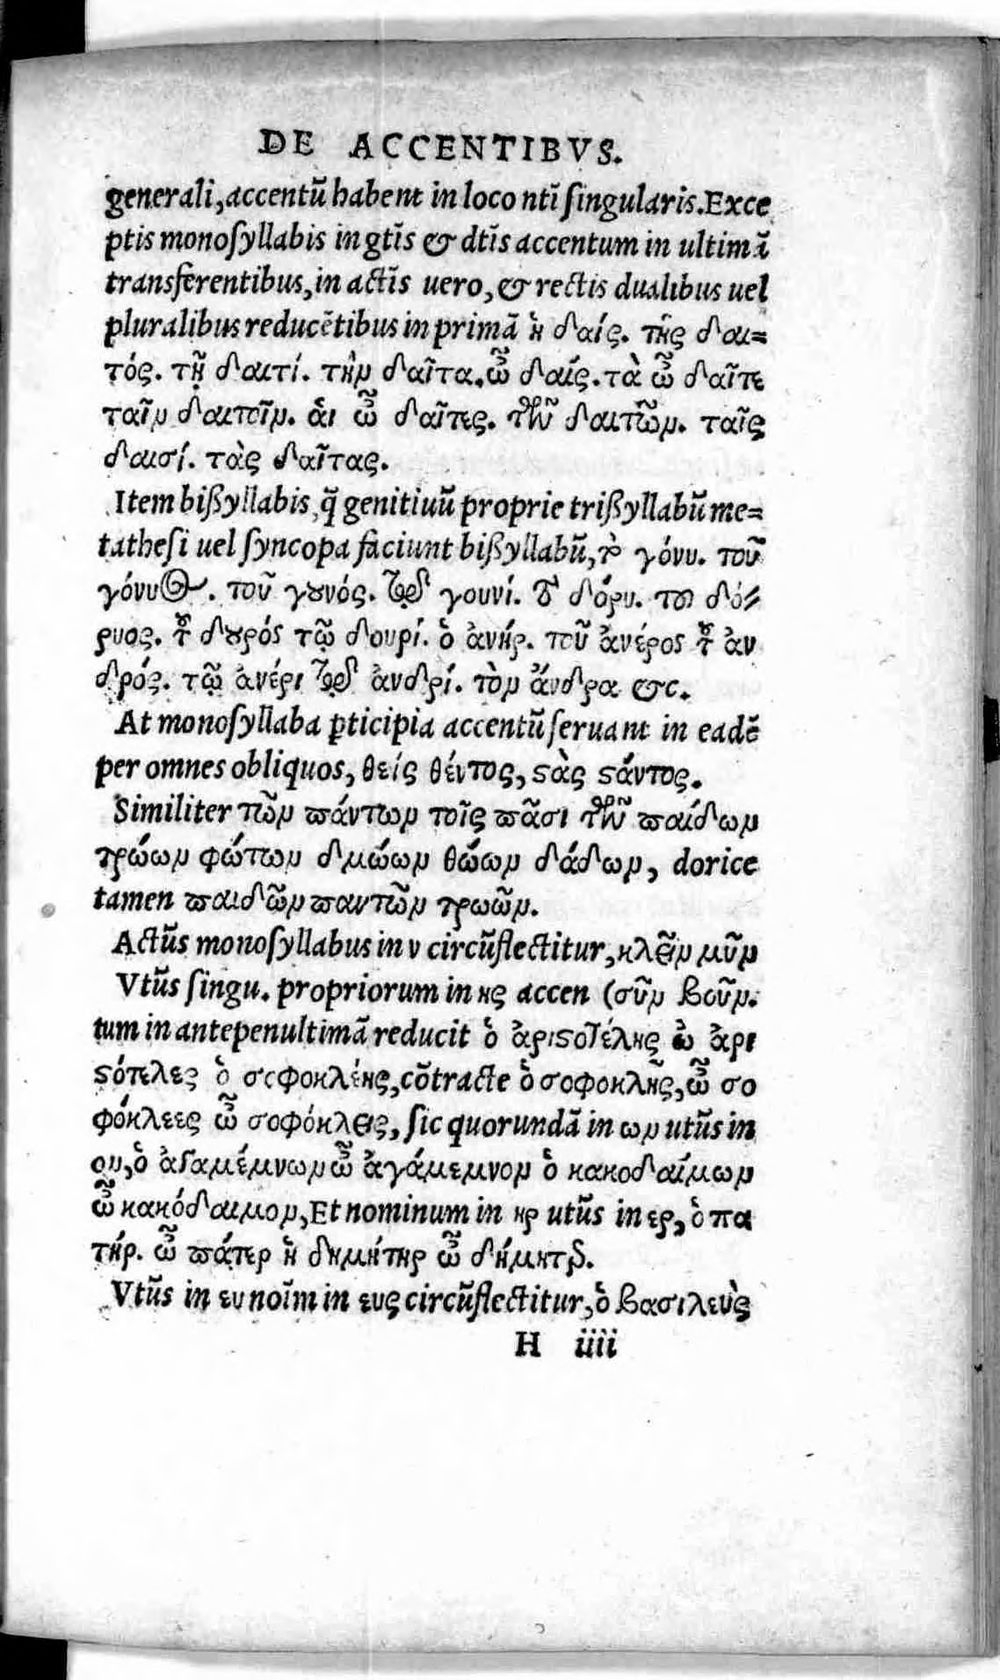 DE ACCENTIBVS.
generali, accentũ habent in loco ntĩ ſingularis. Exce
ptis monoſyllabis in gtĩs & dtĩs accentum in ultimã
transferentibus, in actĩs uero, & rectis dualibus uel
pluralibus reducẽtibus in primã ἡ δαίς. τῆς δαι=
τός. τῇ δαιτί. τὴν δαῖτα. ὦ δαίς. τὰ ὦ δαῖτε
ταῖν δαιτοῖν. ἁι ὦ δαῖτες. τῶν δαιτῶν. ταῖς
δαισί. τὰς δαῖτας.
Item bißyllabis, q̃ genitiuũ proprie trißyllabũ me=
tatheſi uel ſyncopa faciunt bißyllabũ, τὸ γόνυ. τοῦ
γόνυος. τοῦ γουνός. τῷ γουνί. τὸ δόρυ. τοῦ δό=
ρυος. τοῦ δουρός τῷ δουρί. ὁ ἀνήρ. τοῦ ἀνέρος τοῦ ἀν
δρός. τῷ ἀνέρι τῷ ἀνδρί. τὸν ἄνδρα &c.
At monoſyllaba ꝑticipia accentũ ſeruant in eadẽ
per omnes obliquos, θείς θέντος, ϛὰς ϛάντος.
Similiter τῶν πάντων τοῖς πᾶσι τῶν παίδων
τρώων φώτων δμώων θώων δάδων, dorice
tamen παιδῶν παντῶν τρωῶν.
Actũs monoſyllabus in ν circũflectitur, κλεῖν μῦν
Vtũs ſingu. propriorum in ης accen (σῦν βοῦν.
tum in antepenultimã reducit ὁ ἀριϛοτέλης ὦ ἀρι
ϛότελες ὁ σοφοκλέης, cõtracte ὁ σοφοκλῆς, ὦ σο
φόκλεες ὦ σοφόκλεις, ſic quorundã in ων utũs in
ον, ὁ ἀγαμέμνων ὦ ἀγάμεμνον ὁ κακοδαίμων
ὦ κακόδαιμον, Et nominum in ηρ utũs in ερ, ὁ πα
τήρ. ὦ πάτερ ἡ δημήτηρ ὦ δήμητερ.
Vtũs in ευ noĩm in ευς circũflectitur, ὁ βασιλεὺς
H iiii